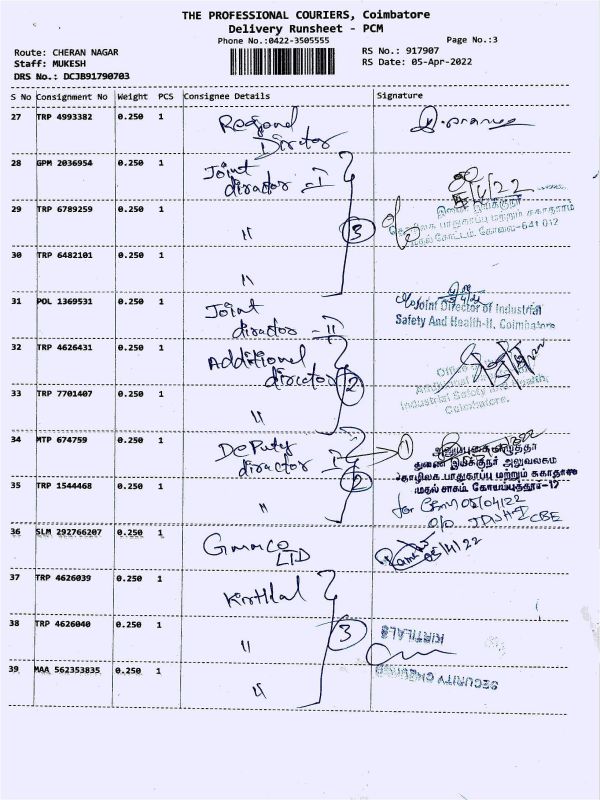 THE PROFESSIONAL COURIERS, Coimbatore
Delivery Runsheet - PCM
Phone No.:0422-3505555
Page No.:3
Route: CHERAN NAGAR
RS No.: 917907
Staff: MUKESH
RS Date: 05-Apr-2022
DRS No.: DCJB91790703
S No Consignment No Weight PCS Consignee Details Signature
27 TRP 4993382 0.250 1 Regional
Director
28 GPM 2036954 0.250 1 Joint
director - I
5/4/22
29 TRP 6789259 0.250 1 " 3
இணை இயக்குநர்
தொழிலக பாதுகாப்பு மற்றும் சுகாதாரம்
கோவை-641 012
30 TRP 6482101 0.250 1 "
31 POL 1369531 0.250 1 Joint
director - II
Joint Director of Industrial
Safety And Health-II, Coimbatore
32 TRP 4626431 0.250 1 Additional
director 2
Industrial Safety and Health,
Coimbatore.
33 TRP 7701407 0.250 1 "
34 MTP 674759 1 Deputy
diractor I 1
துணை இயக்குநர் அலுவலகம்
தொழிலக பாதுகாப்பு மற்றும் சுகாதாரம்
35 TRP 1544468 0.250 1 " 2
05/04/22
CBE
36 SLM 292766207 0.250 1 Gmmco
LTD
05/4/22
37 TRP 4626039 0.250 1 Kirtilal
38 TRP 4626040 0.250 1 " 3
KIRTILALS
39 MAA 562353835 0.250 1 "
SECURITY CHECKED